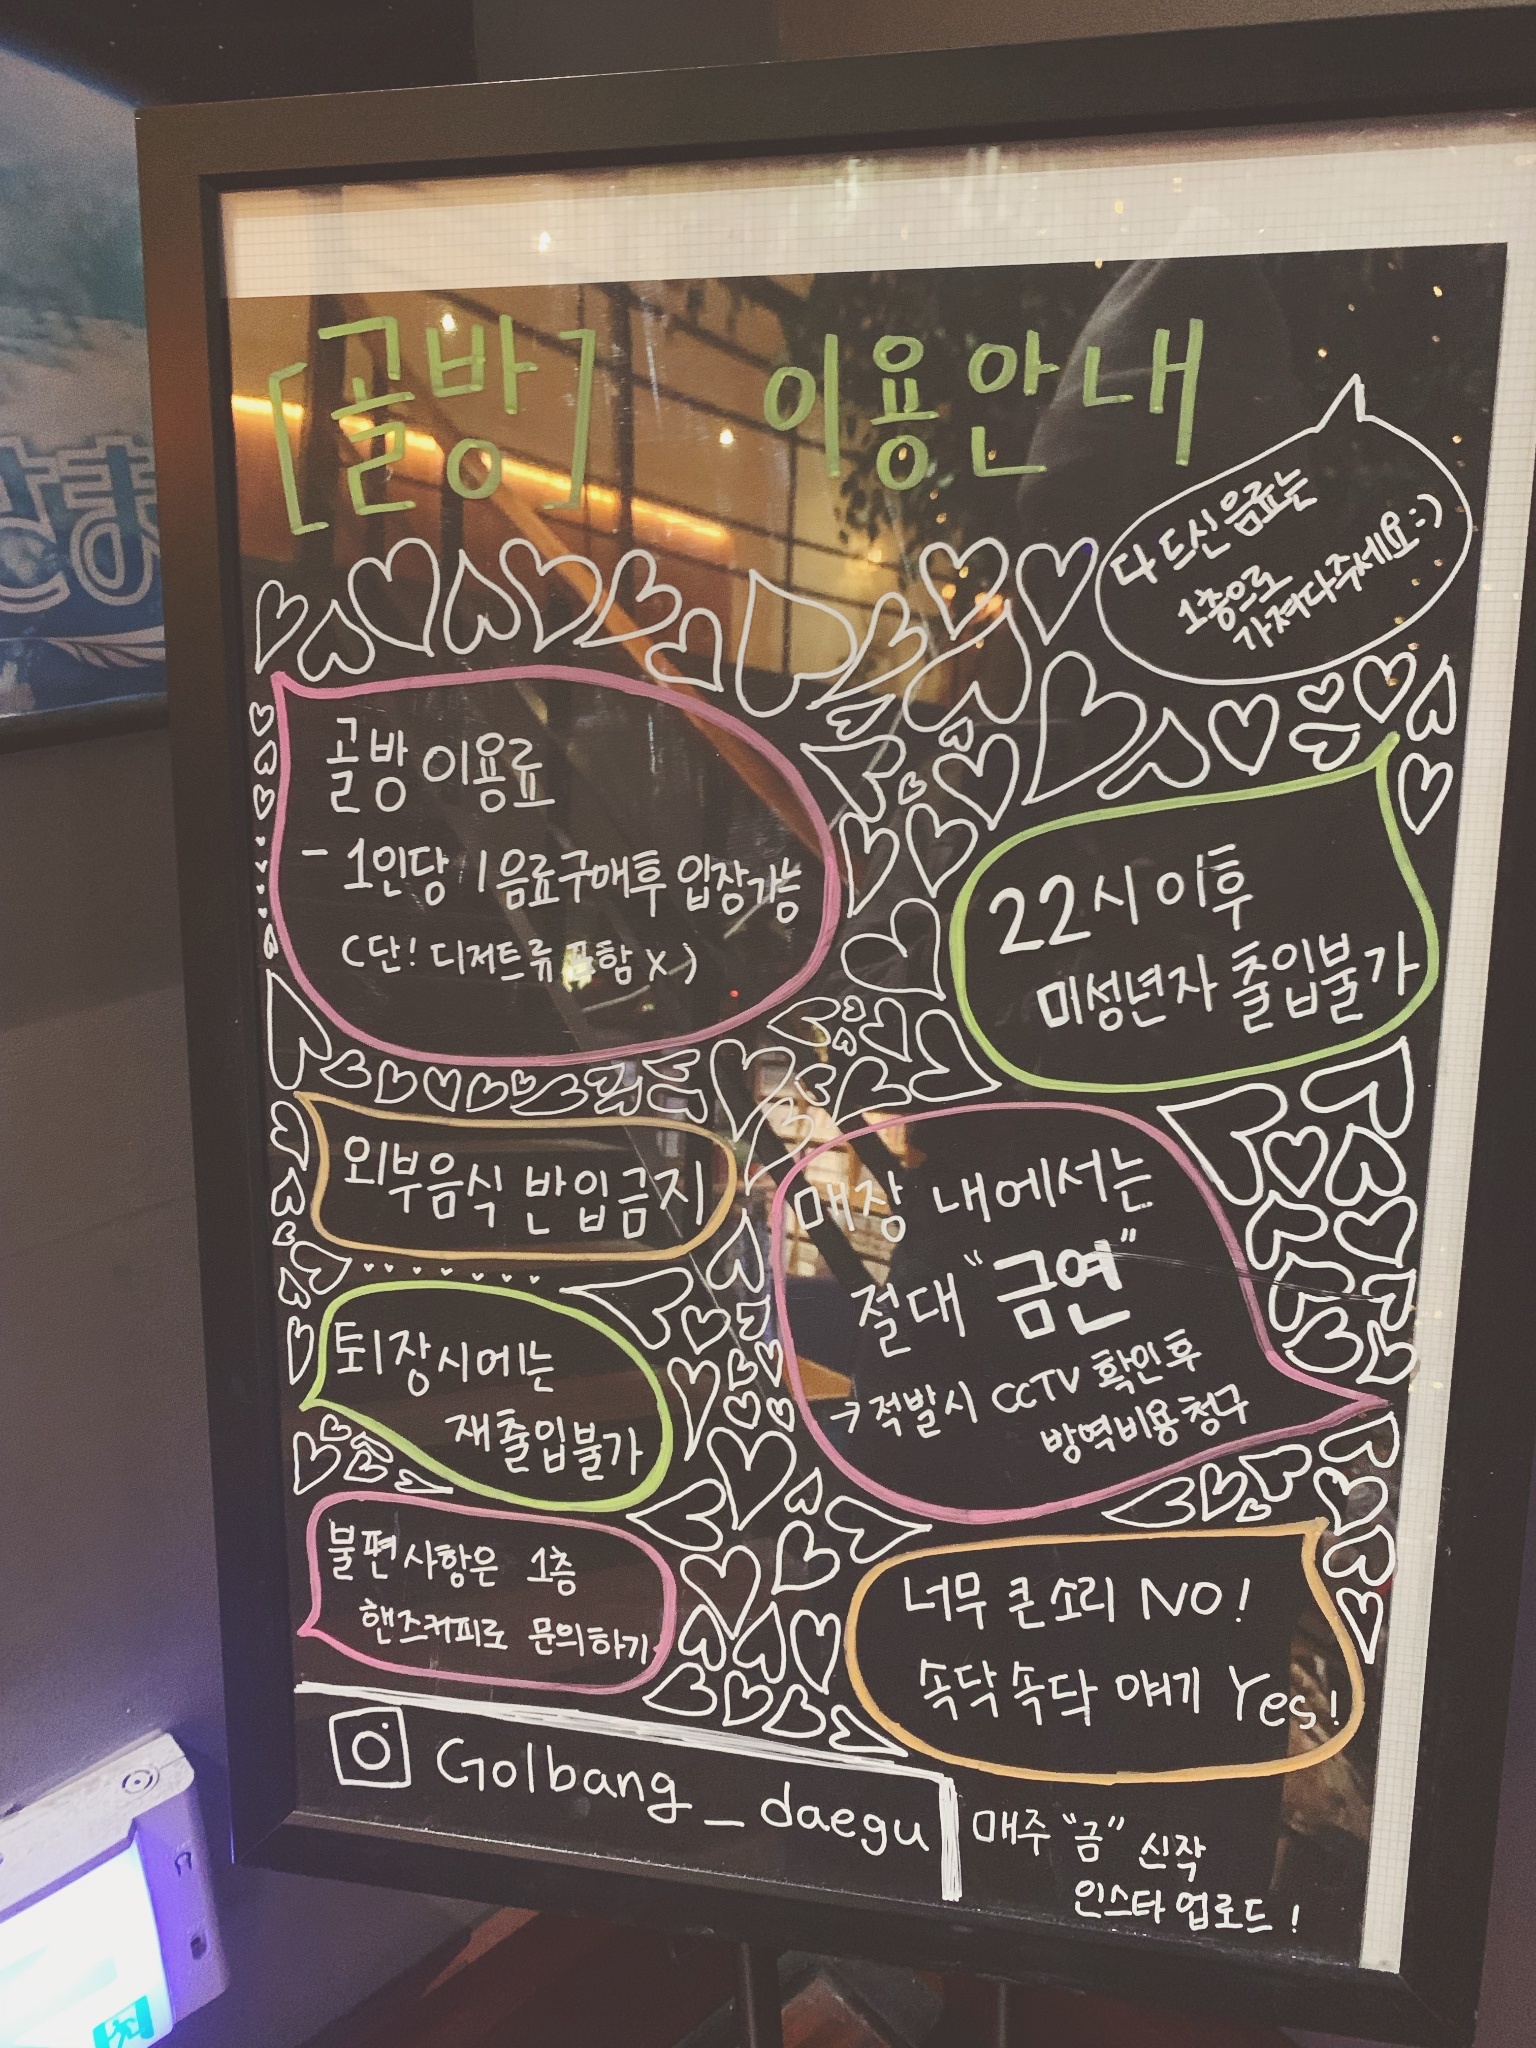 [골방] 이용안내
다 드신 음료는
1층으로
가져다주세요:)
골방 이용료
- 1인당 1음료구매후 입장가능
(단! 디저트류 포함 X)
22시 이후
미성년자 출입불가
외부음식 반입금지
매장 내에서는
절대 "금연"
→ 적발시 CCTV 확인후
방역비용청구
퇴장시에는
재출입불가
불편사항은 1층
핸즈커피로 문의하기
너무 큰소리 NO!
속닥속닥 얘기 Yes!
Golbang_daegu
매주 "금" 신작
인스타 업로드!